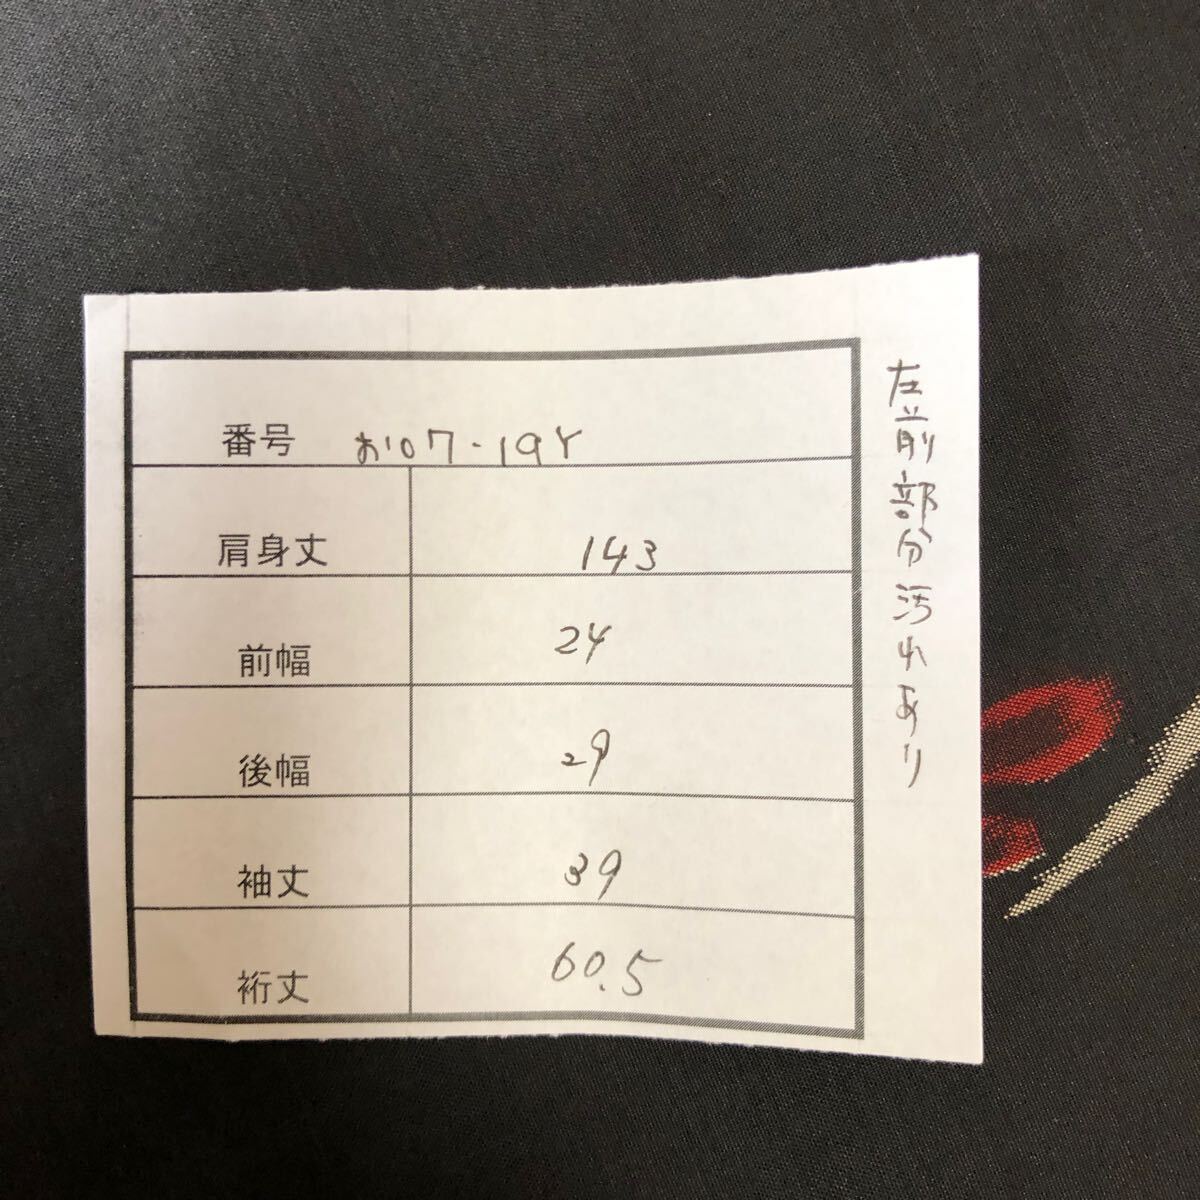 番号 お107-19Y
肩身丈 143
前幅 24
後幅 29
袖丈 39
裄丈 60.5
左前部分汚れあり